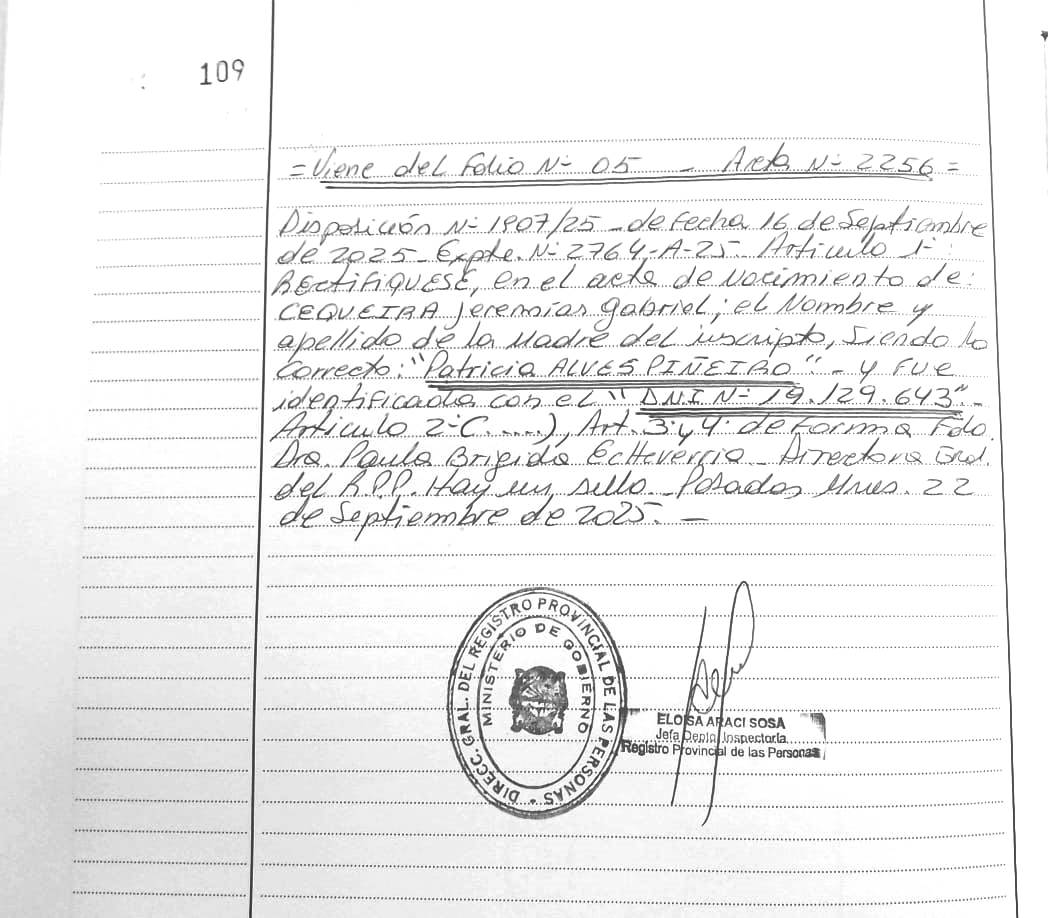 109
= Viene del Folio Nº 05 - Acta Nº 2256 =
Disposición Nº 1907/25 - de Fecha 16 de Septiembre
de 2025 - Expte. Nº 2764-A-25. Articulo 1º:
RECTIFIQUESE, en el acta de Nacimiento de:
CEQUEIRA Jeremías Gabriel; el Nombre y
apellido de la Madre del inscripto, Siendo lo
Correcto: "Patricia ALVES PIÑEIRO" - y Fue
identificada con el "DNI Nº 19.129.643".-
Articulo 2º C.....), Art. 3º y 4º de Forma Fdo.
Dra. Paula Brigida Echeverria - Directora Gral.
del R.P.P. Hay un sello. Posadas Mnes. 22
de Septiembre de 2025. -
DIRECC. GRAL. DEL REGISTRO PROVINCIAL DE LAS PERSONAS
MINISTERIO DE GOBIERNO
ELOISA ARACI SOSA
Jefa Depto Inspectoría
Registro Provincial de las Personas